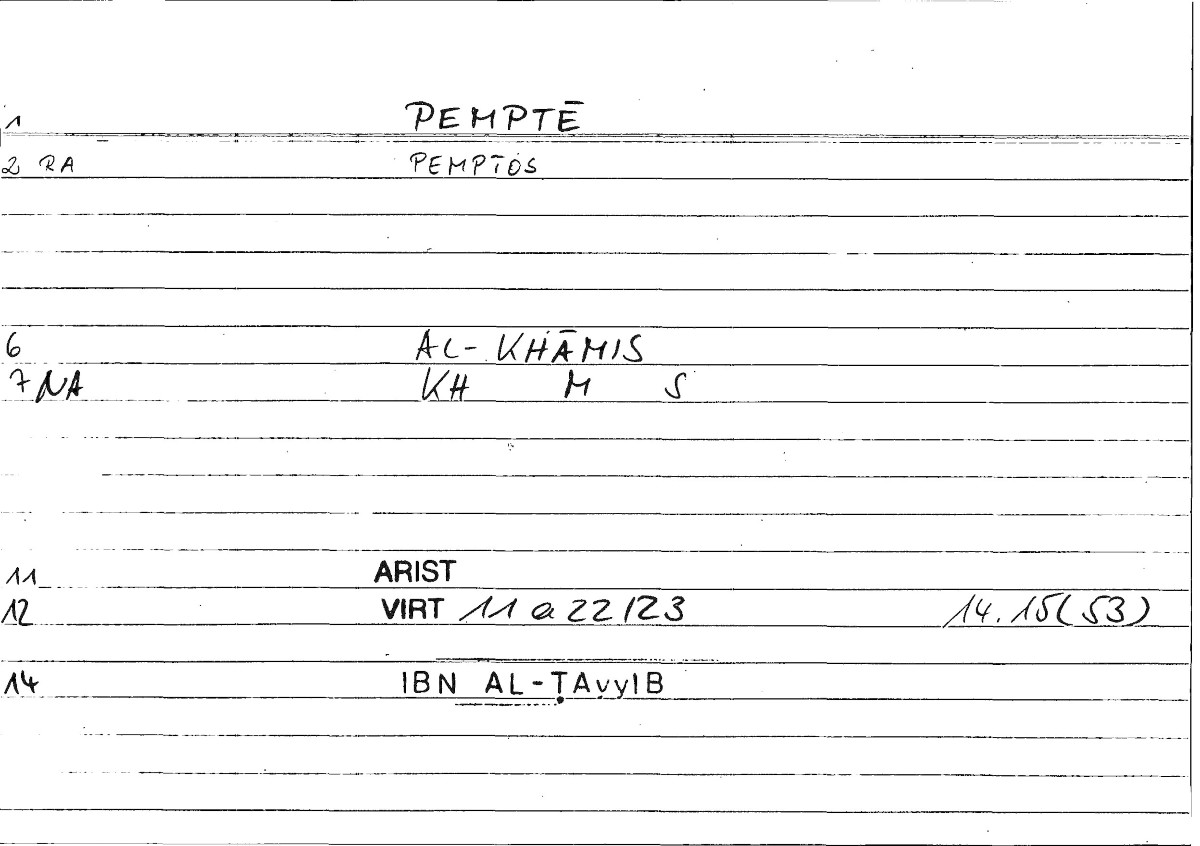 1 PEMPTĒ
2 RA PEMPTOS
6 AL-KHĀMIS
7 NA KH M S
11 ARIST
12 VIRT 11 a 22/23 14.15(53)
14 IBN AL-ṬAyyIB